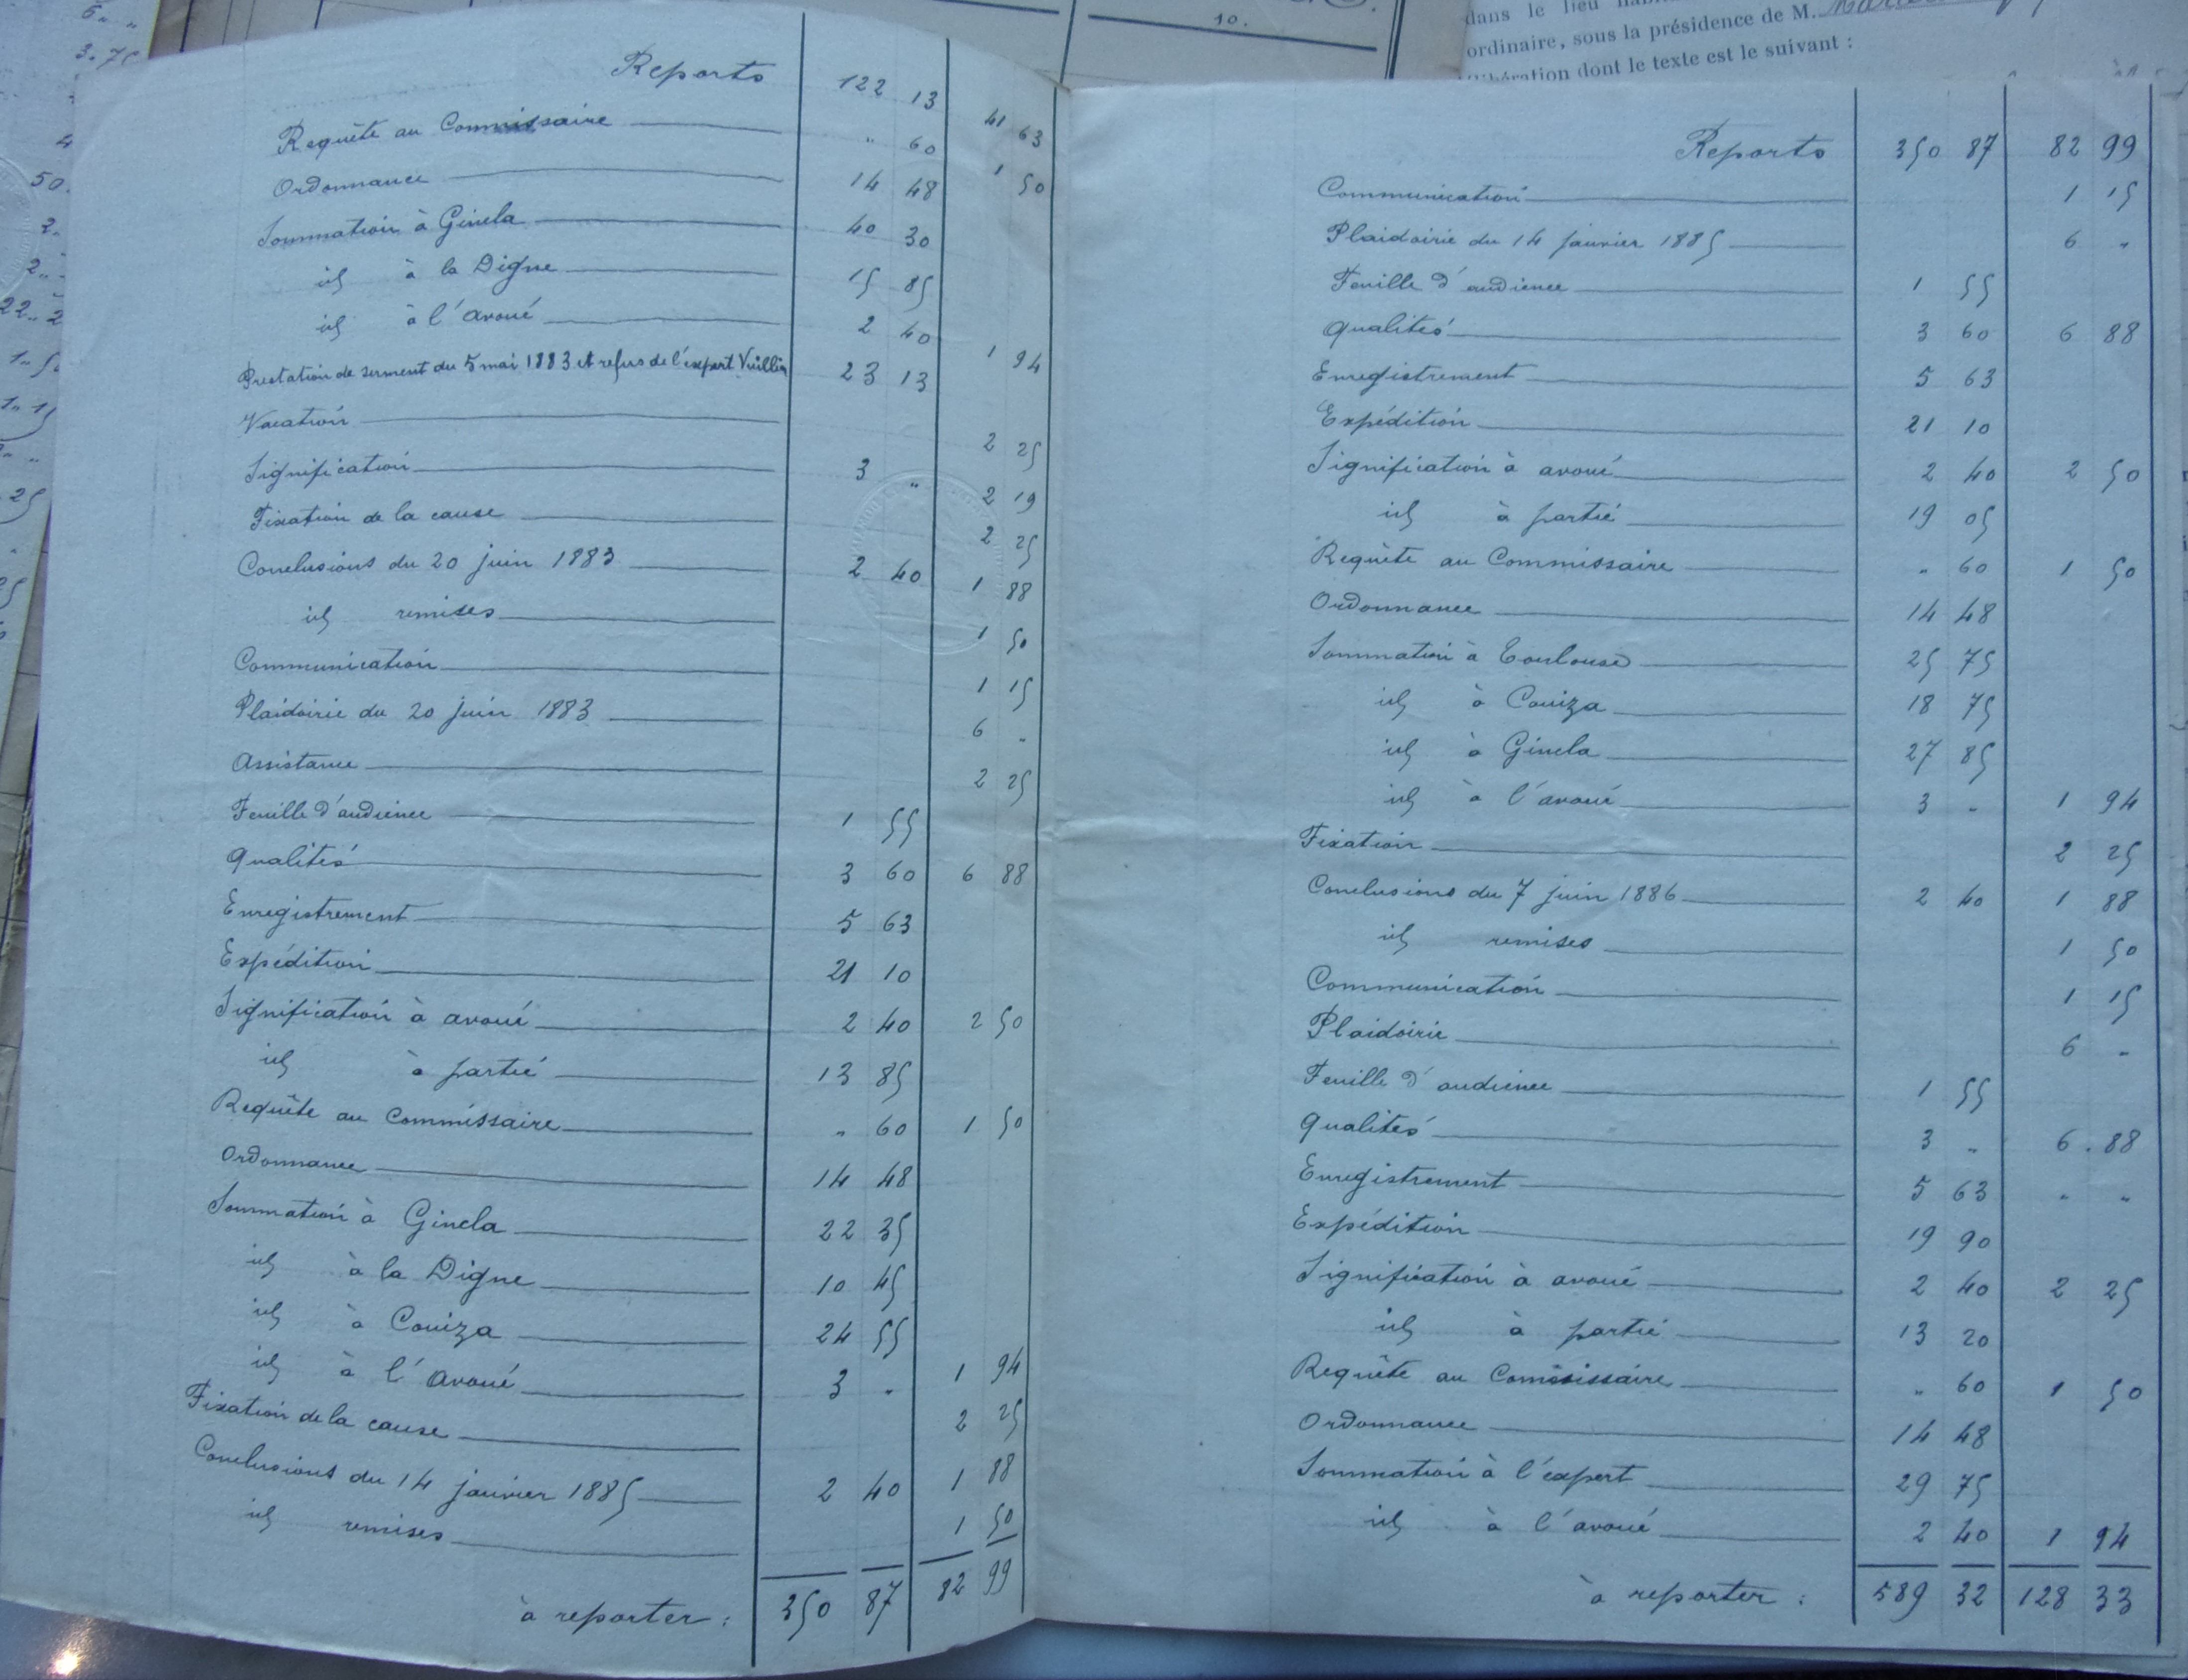 10.
dans le lieu
ordinaire, sous la présidence de M.
délibération dont le texte est le suivant :
3.75
4
50.
2.
1.15
25
Reports 122 13 41 63
Requête au Commissaire " 60 1 50
Ordonnance 14 48
Sommation à Ginela 40 30
id à la Digne 15 85
id à l'avoué 2 40 1 94
Prestation de serment du 5 mai 1883 et refus de l'expert Vuillier 23 13
Vacation 2 25
Signification 3 " 2 19
Fixation de la cause 2 25
Conclusions du 20 juin 1883 2 40 1 88
id remises 1 50
Communication 1 15
Plaidoirie du 20 juin 1883 6 "
Assistance 2 25
Feuille d'audience 1 55
Qualités 3 60 6 88
Enregistrement 5 63
Expédition 21 10
Signification à avoué 2 40 2 50
id à partie 13 85
Requête au Commissaire " 60 1 50
Ordonnance 14 48
Sommation à Ginela 22 35
id à la Digne 10 45
id à Couiza 24 55
id à l'avoué 3 " 1 94
Fixation de la cause 2 25
Conclusions du 14 janvier 1885 2 40 1 88
id remises 1 50
à reporter : 350 87 82 99
Reports 350 87 82 99
Communication 1 15
Plaidoirie du 14 janvier 1885 6 "
Feuille d'audience 1 55
Qualités 3 60 6 88
Enregistrement 5 63
Expédition 21 10
Signification à avoué 2 40 2 50
id à partie 19 05
Requête au Commissaire " 60 1 50
Ordonnance 14 48
Sommation à Toulouse 25 75
id à Couiza 18 75
id à Ginela 27 85
id à l'avoué 3 " 1 94
Fixation 2 25
Conclusions du 7 juin 1886 2 40 1 88
id remises 1 50
Communication 1 15
Plaidoirie 6 "
Feuille d'audience 1 55
Qualités 3 " 6 . 88
Enregistrement 5 63 " "
Expédition 19 90
Signification à avoué 2 40 2 25
id à partie 13 20
Requête au Commissaire " 60 1 50
Ordonnance 14 48
Sommation à l'expert 29 75
id à l'avoué 2 40 1 94
à reporter : 589 32 128 33